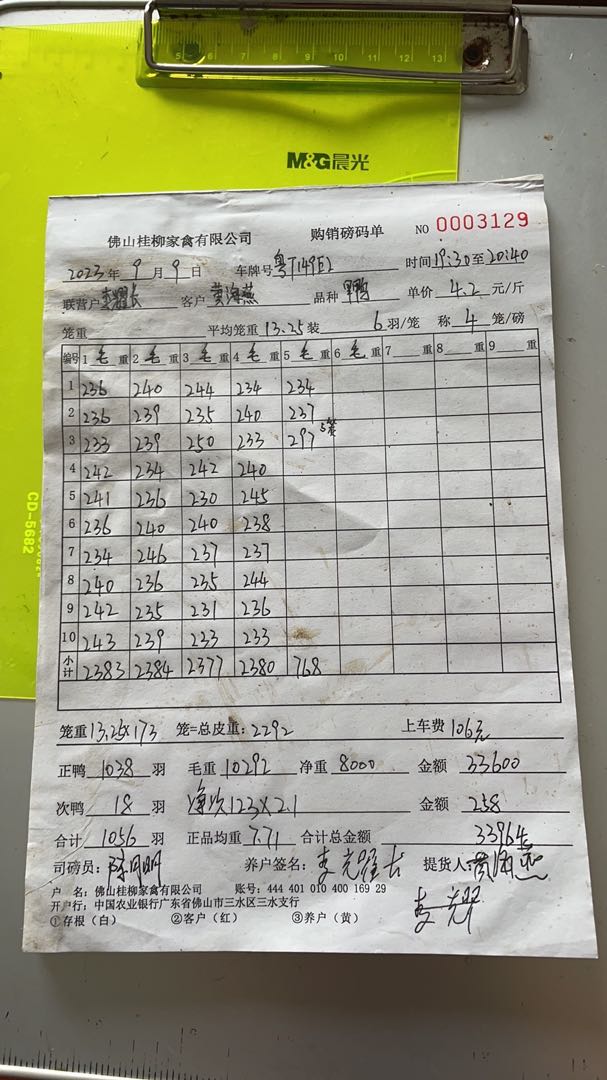 5 6 7 8 9 10 11 12 13
M&G晨光
CD-5682
佛山桂柳家禽有限公司 购销磅码单 NO 0003129
2023年9月9日 车牌号 粤T149E2 时间19:30至20:40
联营户 李耀长 客户 黄海燕 品种 鸭 单价 4.2 元/斤
笼重 平均笼重 13.25 装 6 羽/笼 称 4 笼/磅
编号 1 毛 重 2 毛 重 3 毛 重 4 毛 重 5 毛 重 6 毛 重 7 重 8 重 9 重
1 236 240 244 234 234
2 236 239 235 240 237
3 233 239 250 233 297 5笼
4 242 234 242 240
5 241 236 230 245
6 236 240 240 238
7 234 246 237 237
8 240 236 235 244
9 242 235 231 236
10 243 239 233 233
小计 2383 2384 2377 2380 768
笼重 13.25×173 笼=总皮重: 2292 上车费 106元
正鸭 1038 羽 毛重 10292 净重 8000 金额 33600
次鸭 18 羽 净次123×2.1 金额 258
合计 1056 羽 正品均重 7.71 合计总金额 33964
司磅员: 陈月明 养户签名: 李光耀长 提货人: 黄海燕
户 名: 佛山桂柳家禽有限公司 账号: 444 401 010 400 169 29
开户行: 中国农业银行广东省佛山市三水区三水支行
李光耀
①存根(白) ②客户(红) ③养户(黄)